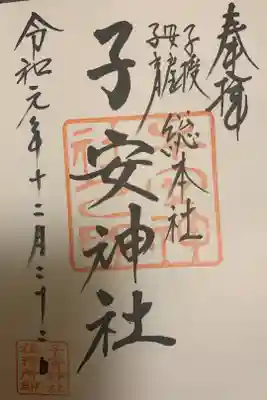 奉拝
子授
安産
子育
総本社
子安神社
令和元年十二月二十二日